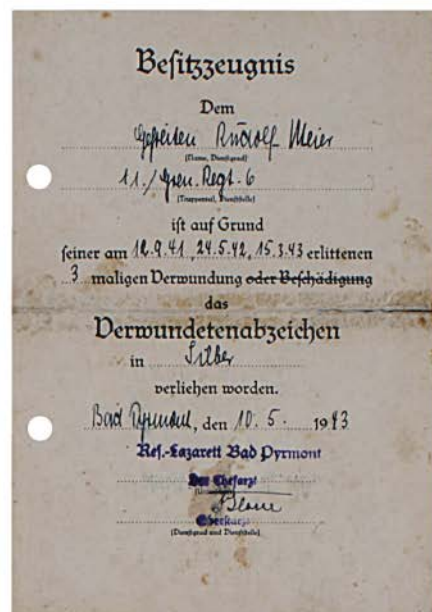 Besitzzeugnis
Dem
Gefreiten Rudolf Meier
(Name, Dienstgrad)
11./ Gren. Regt. 6
(Truppenteil, Dienststelle)
ist auf Grund
seiner am 12.9.41, 24.5.42, 15.3.43 erlittenen
3 maligen Verwundung oder Beschädigung
das
Verwundetenabzeichen
in Silber
verliehen worden.
Bad Pyrmont, den 10. 5. 1943
Res.-Lazarett Bad Pyrmont
Der Chefarzt
Oberstarzt
(Dienstgrad und Dienststelle)